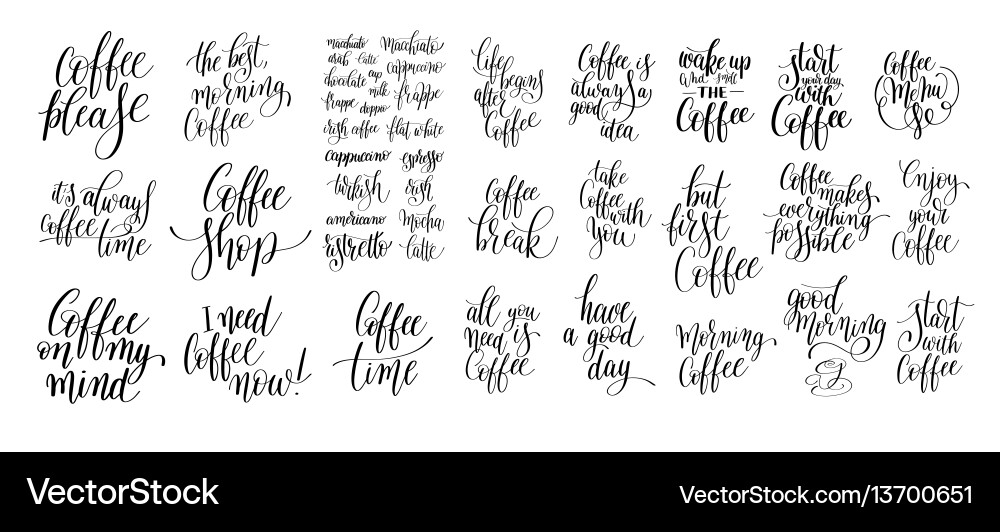 Coffee
please
the best
morning
Coffee
macchiato Macchiato
arab Latte cappuccino
chocolate cup
milk frappe
frappe doppio
irish coffee flat white
cappuccino espresso
turkish irish
americano Mocha
ristretto latte
life
begins
after
Coffee
Coffee is
always a
good
idea
wake up
and smell
THE
Coffee
start
your day
with
Coffee
Coffee
Menu
it's always
coffee
time
Coffee
shop
Coffee
break
take
Coffee
with
you
but
first
Coffee
Coffee
makes
everything
possible
Enjoy
your
Coffee
Coffee
on my
mind
I need
Coffee
now!
Coffee
time
all you
need is
Coffee
have
a good
day
Morning
Coffee
good
Morning
start
with
Coffee
VectorStock
VectorStock.com/13700651